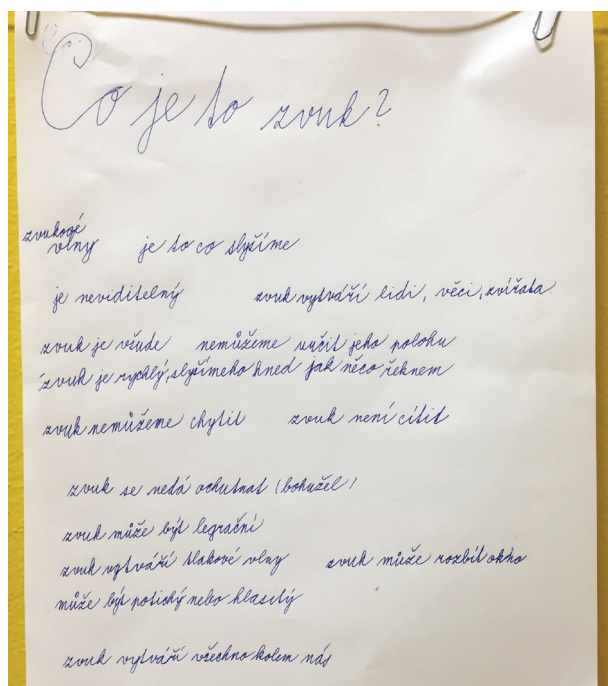 Co je to zvuk?
zvukové
vlny je to co slyžíme
je neviditelný zvuk vytváří lidi, věci, zvířata
zvuk je všude nemůžeme určit jeho polohu
zvuk je rychlý, slyžímeho hned jak něco řeknem
zvuk nemůžeme chytit zvuk není cítit
zvuk se nedá ochutnat (bohužel)
zvuk může být legrační
zvuk vytváří tlakové vlny zvuk může rozbít okno
může být potichý nebo hlasitý
zvuk vytváří všechno kolem nás